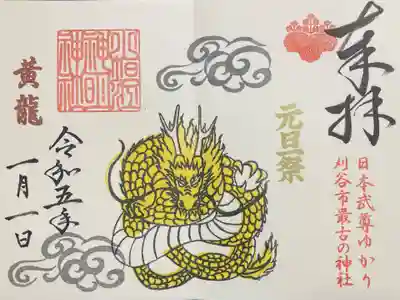 奉拝
日本武尊ゆかり
刈谷市最古の神社
元旦祭
小垣江
神明
神社
黄龍
令和五年
一月一日